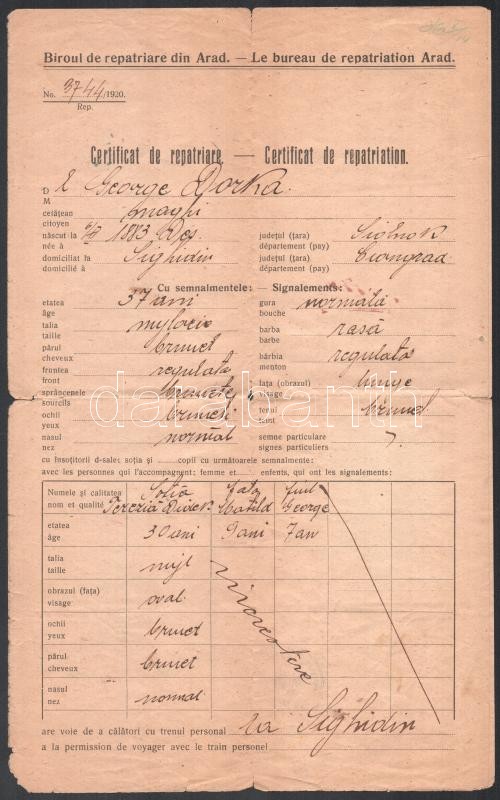 Biroul de repatriare din Arad. — Le bureau de repatriation Arad.
No. 3744/1920.
Rep.
Certificat de repatriare. — Certificat de repatriation.
D l George Dorka.
M
cetățean
citoyen maghi
născut la 1883 Dej. județul (țara) Siolnok
née à département (pay)
domiciliat la Sighidin județul (țara) Ciongrad
domicilié à département (pay)
Cu semnalmentele: — Signalements:
etatea 37 ani gura normală
âge bouche
talia mijlocie barba rasă
taille barbe
părul brunet bărbia regulată
cheveux menton
fruntea regulata fața (obrazul) lunge
front visage
sprâncenele brunete tenul brunet
sourcils teint
ochii
yeux
nasul normal semne particulare
nez signes particuliers
cu însoțitorii d-sale; soția și copii cu următoarele semnalmente:
avec les personnes qui l'accompagnent; femme et enfents, qui ont les signalements:
Numele și calitatea Soția fata fiul
nom et qualité Terezia Matild George
etatea 30 ani 9 ani 7 ani
âge
talia mijl
taille
obrazul (fața) oval
visage
ochii brunet
yeux
părul brunet
cheveux
nasul normal
nez
are voie de a călători cu trenul personal la Sighidin
a la permission de voyager avec le train personel
darabanth